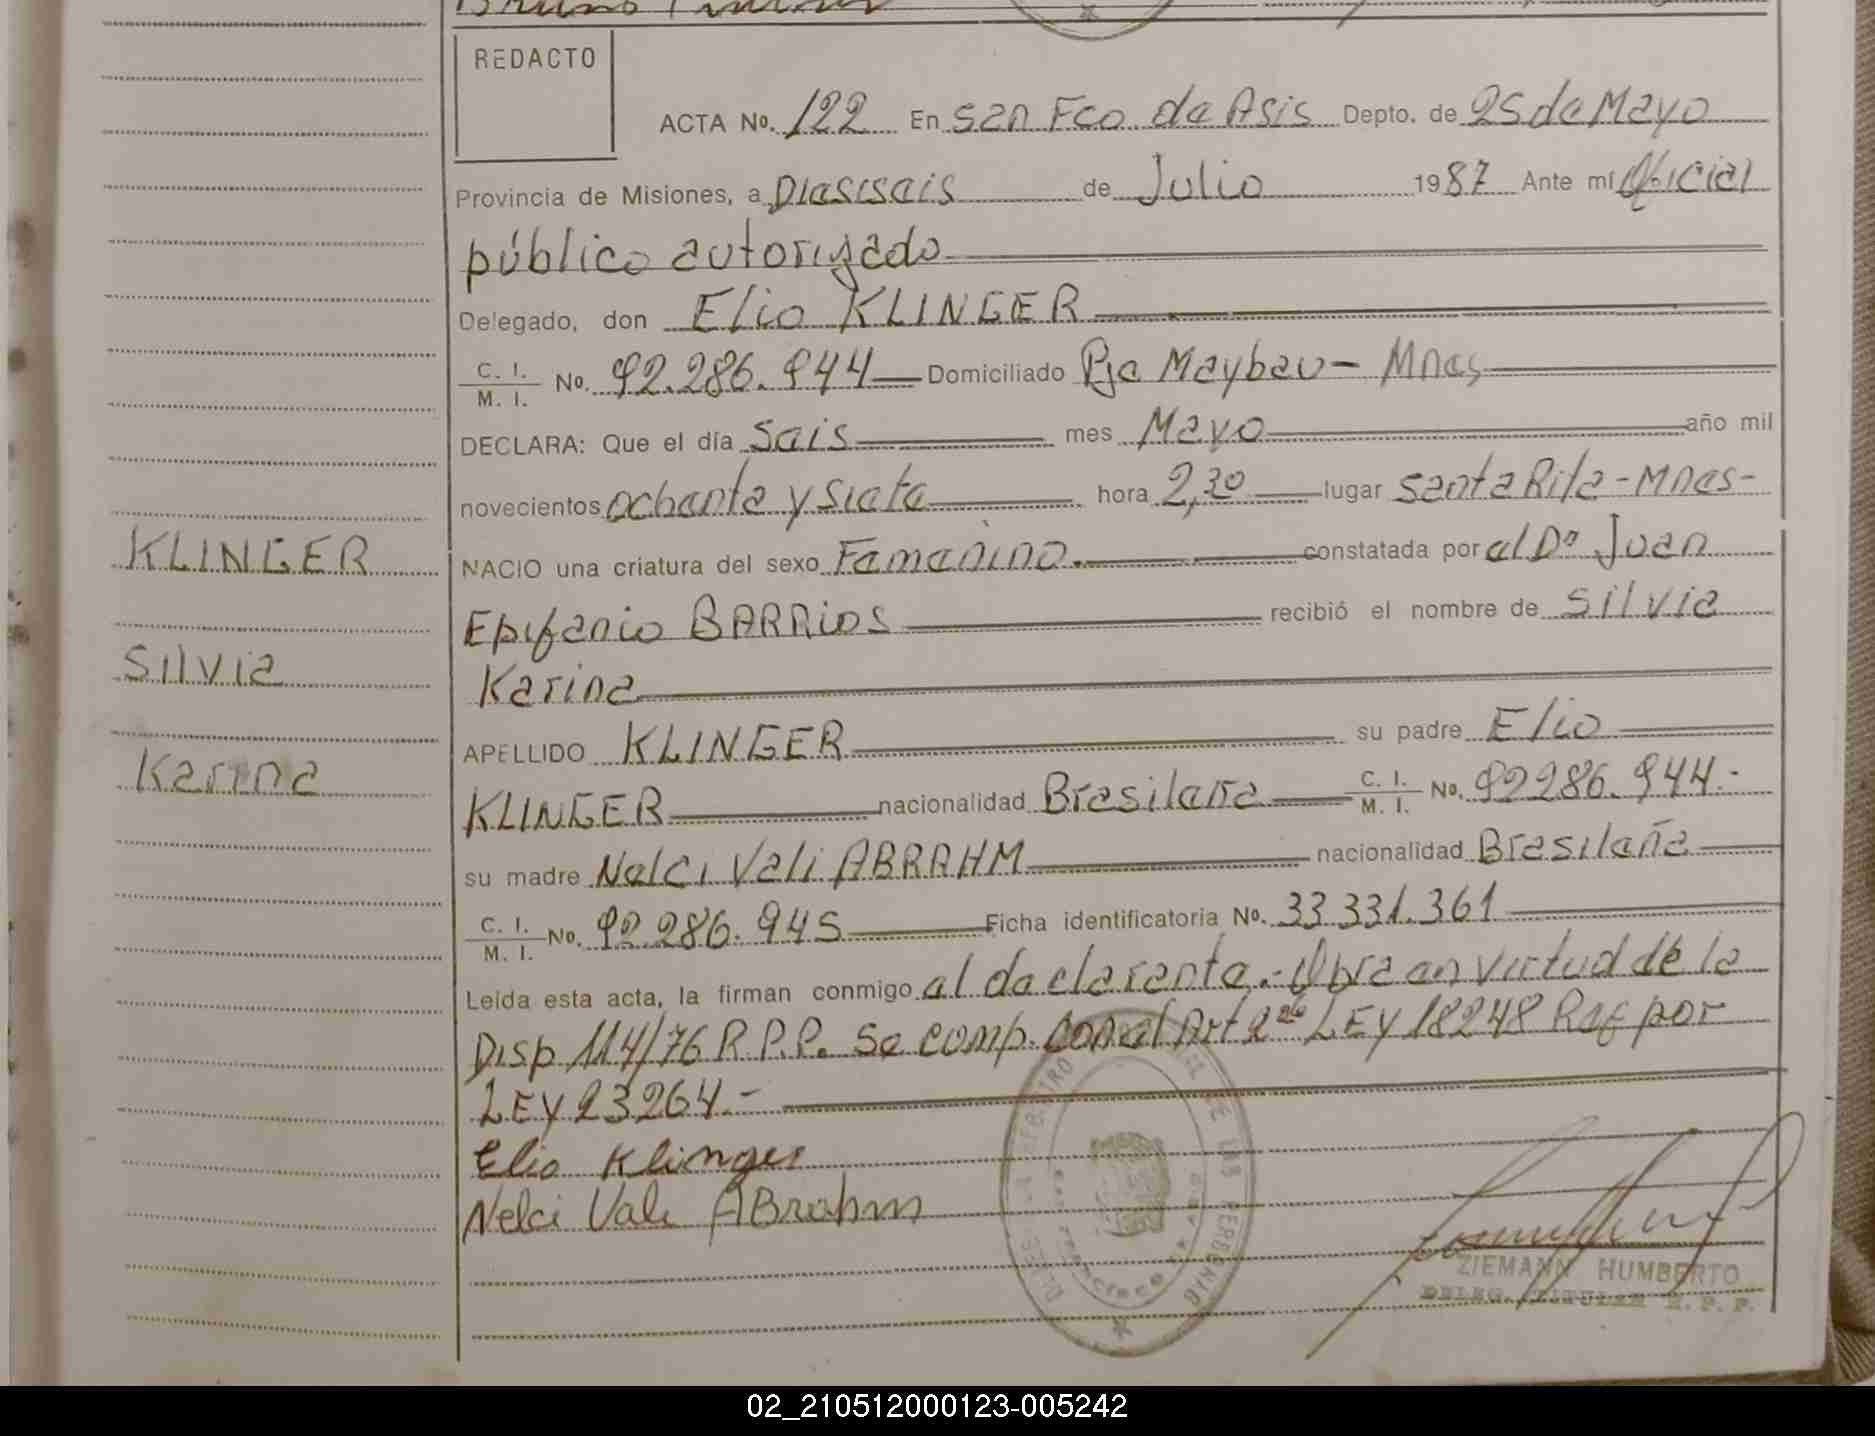 REDACTO
ACTA No. 122 En San Fco. de Asis Depto. de 25 de Mayo
Provincia de Misiones, a Diesiseis de Julio 1987 Ante mí Oficial
público autorizado
Delegado, don Elio KLINGER
C. I. / M. I. No. 92.286.944 Domiciliado Pje Maybau - Mnes
DECLARA: Que el día Seis mes Mayo año mil
novecientos ochenta y siete hora 2,30 lugar Santa Rita - Mnes -
KLINGER
NACIO una criatura del sexo Femenino. constatada por el Do Juan
Epifanio BARRIOS recibió el nombre de Silvia
Silvia
Karina
APELLIDO KLINGER su padre Elio
Karina
KLINGER nacionalidad Brasileña C. I. / M. I. No. 92286.944.-
su madre Nelci Vali ABRAHM nacionalidad Brasileña
C. I. / M. I. No. 92.286.945 Ficha identificatoria No. 33.331.361
Leída esta acta, la firman conmigo el declarante.- Obra en virtud de la
Disp 114/76 R.P.P. Se comp. con el Art 2do LEY 18248 Ref por
LEY 23264.-
Elio Klinger
Nelci Vali ABrahm
ZIEMANN HUMBERTO
DELEG. TITULAR R. P. P.
02_210512000123-005242